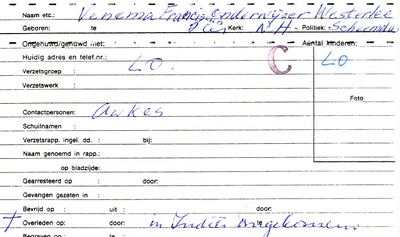 Naam etc.: Venema Francis, onderwijzer Westerlee
Geboren: te Kerk: N H- Politiek:
Ongehuwd/gehuwd met: Aantal kinderen:
Huidig adres en telef.nr.:
Verzetsgroep : LO. C LO
Verzetswerk :
Foto
Contactpersonen: Aukes
Schuilnaam :
Verzetsrapp. ingel. dd. : bij:
Naam genoemd in rapp.:
op bladzijde:
Gearresteerd op : door:
Gevangen gezeten in :
Bevrijd op : uit : door:
† Overleden op: door: te in Indiës omgekomen
Begraven op : te